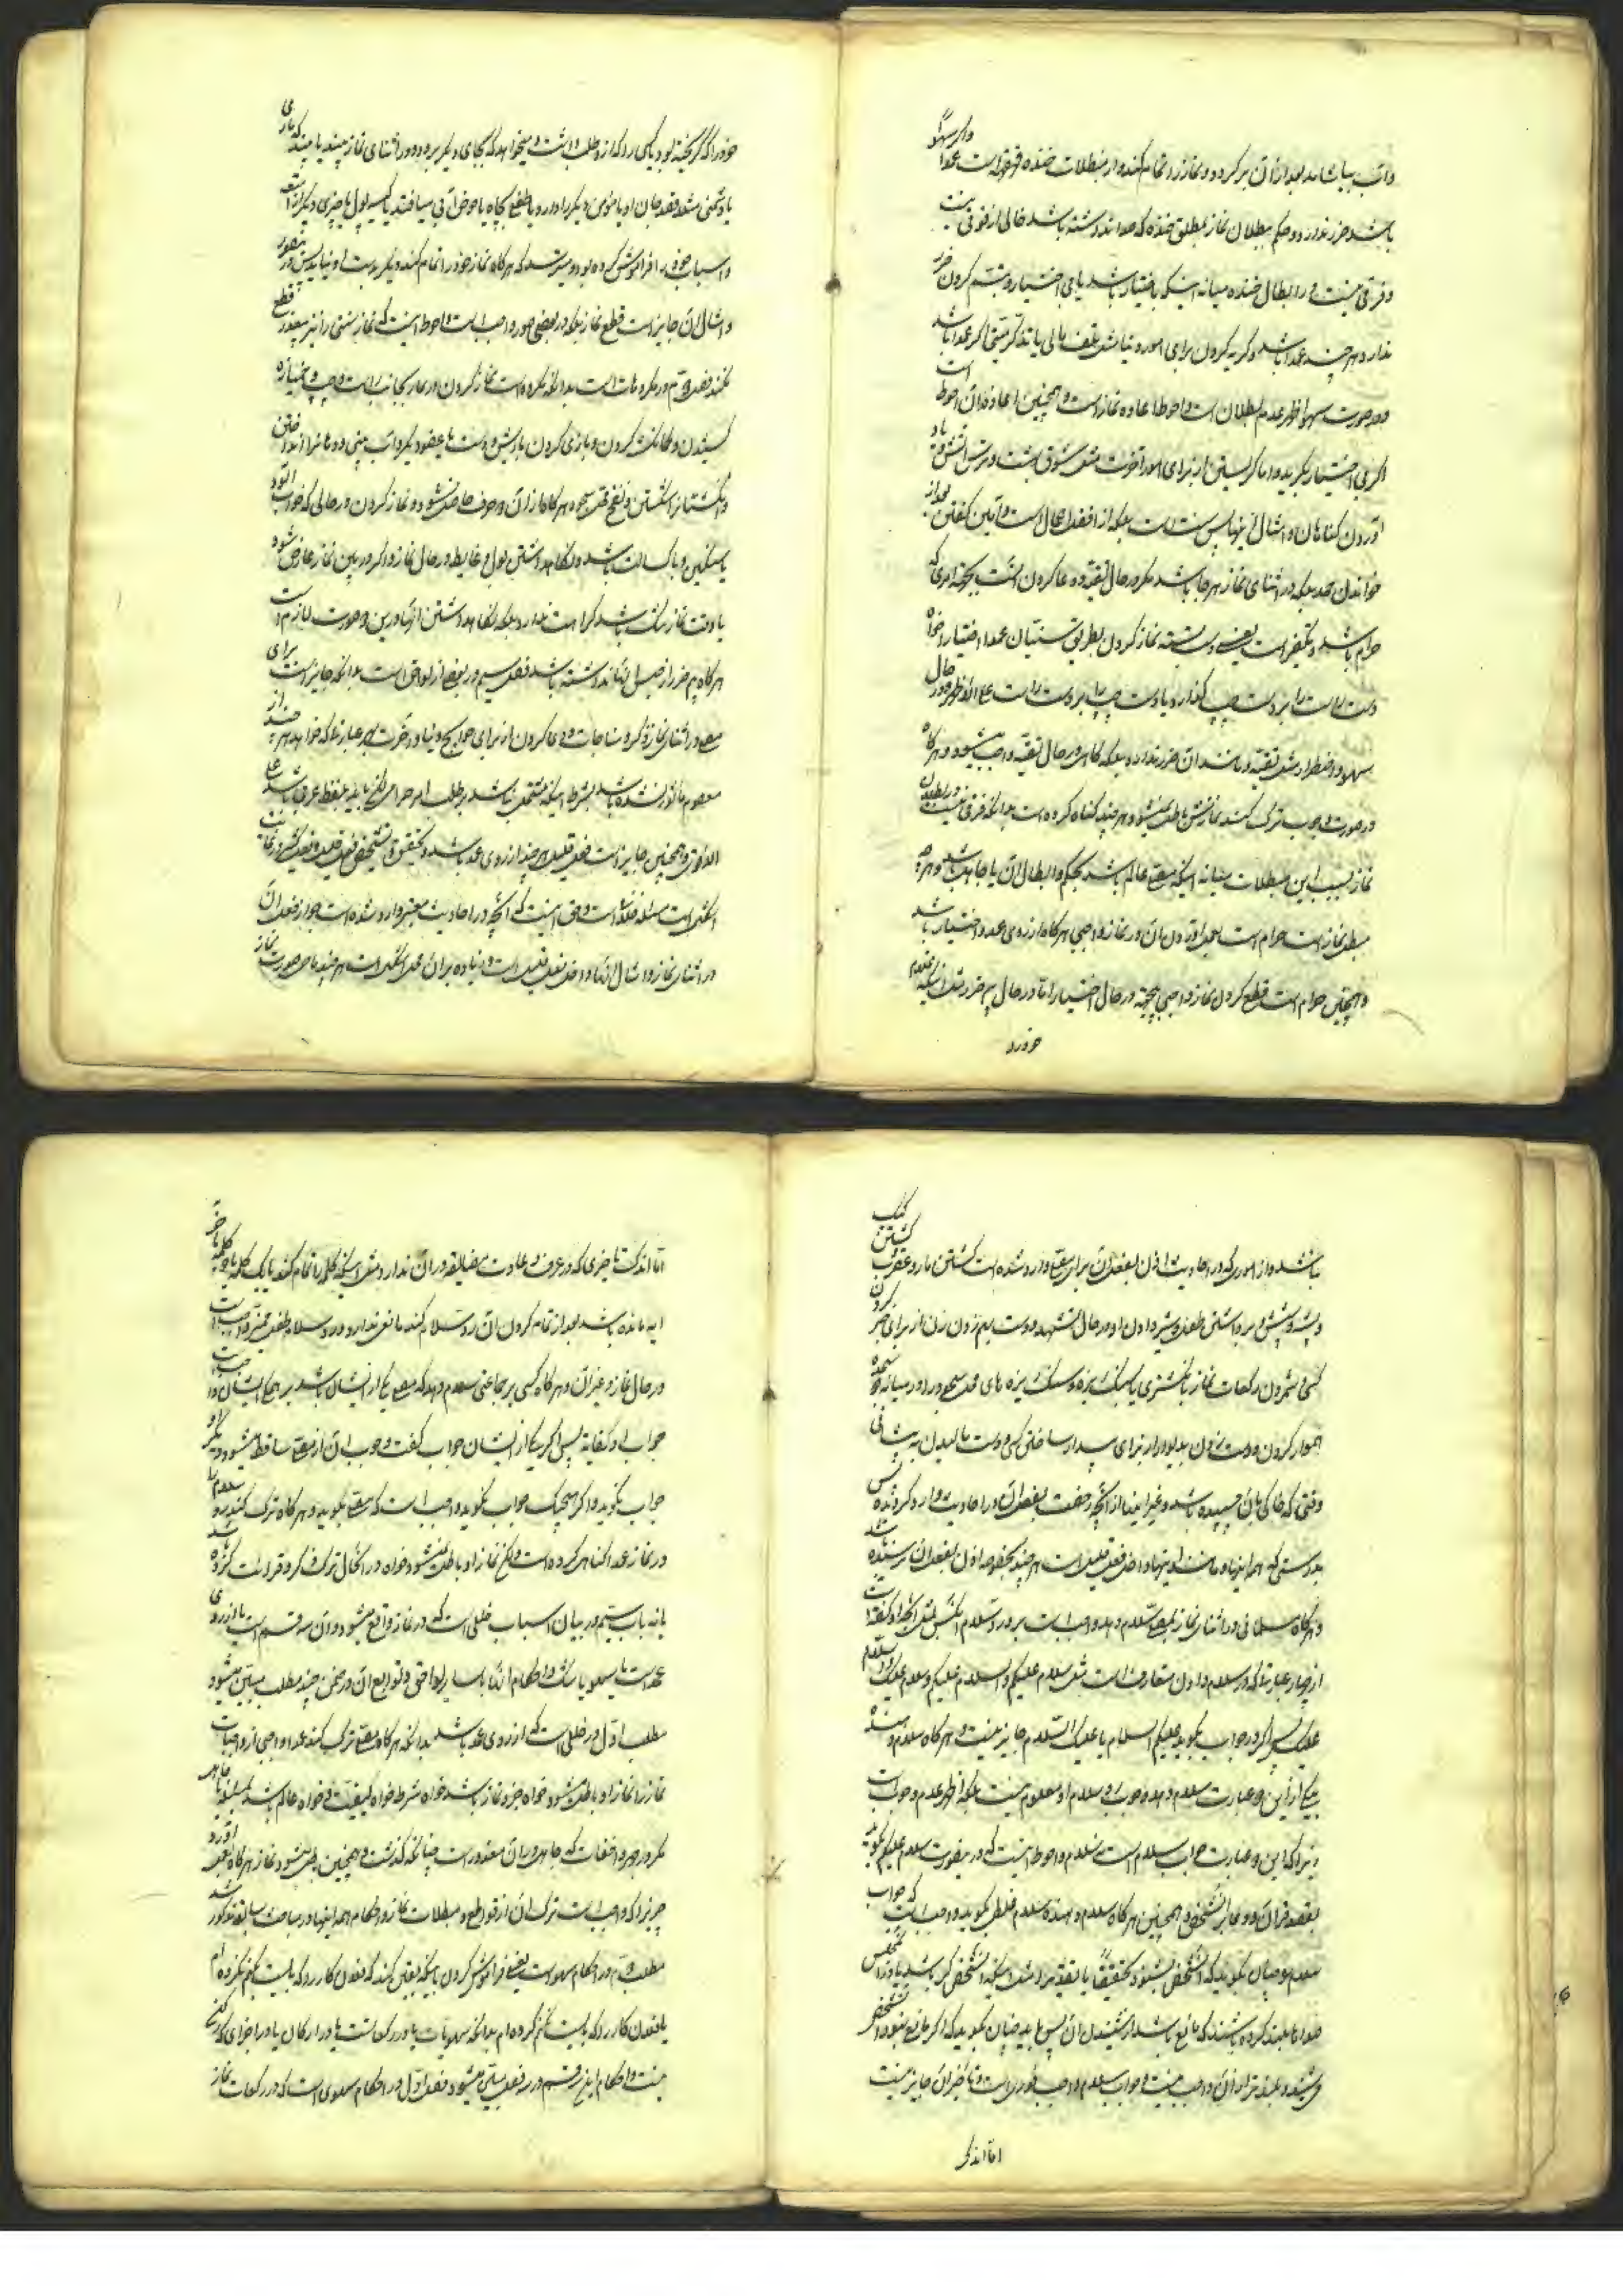 و آب بیاشامد بعد از آن برگردد و نماز را تمام کند و از مبطلات خنده قهقهه است عمدا و اگر سهوا
باشد ضرر ندارد و حکم ببطلان نماز بمطلق خنده که صدا نداشته باشد خالی از قوتی نیست
و فرقی نیست در ابطال خنده میانه اینکه باختیار باشد یا بی اختیار و تبسم کردن ضرر
ندارد هر چند عمدا باشد و گریه کردن برای امور دنیا مثل تلف مالی یا تذکر میتی اگر عمدا باشد
و در صورت سهو اظهر عدم بطلان است و احوط اعاده نماز است و همچنین اعاده آن احوط است
اگر بی اختیار بگرید و اما گریستن از برای امور آخرت مثل شوق بهشت و ترس آتش و بیاد
آوردن گناهان و امثال اینها پس سنت است بلکه از افضل اعمال است و آمین گفتن بعد از
خواندن حمد بلکه در اثنای نماز هر جا باشد مگر در حال تقیه و دعا کردن است بجهة امری که
حرام باشد و تکفیر است یعنی دست بسته نماز کردن بطریق سنیان عمدا و اختیارا خواه
دست راست را بر دست چپ گذارد یا دست چپ را بر دست راست علی الاظهر و در حال
سهو و اضطرار مثل تقیه و مانند آن ضرر ندارد بلکه گاهی در حال تقیه واجب میشود و هر گاه
در صورت وجوب ترک کند نمازش باطل نمیشود هر چند گناه کرده است بدانکه فرقی نیست در بطلان
نماز بسبب این مبطلات میانه اینکه مصلی عالم باشد بحکم و ابطال آن یا جاهل باشد و هر چه
مبطل نماز است حرام است بعمل آوردن آن در نماز واجبی هر گاه از روی عمد و اختیار باشد
و همچنین حرام است قطع کردن نماز واجبی بی جهة در حال اختیار اما در حال ضرورت مثل اینکه غلام
خود را
خود را که گریخته بود یا کسی را که از او طلب داشت و میخواهد که بجای دیگر برود در اثنای نماز به بیند یا بیند که ماری
یا دشمنی متعرض قصد جان او یا مؤمن دیگر را دارد یا طفلی بچاه یا حوض آبی میافتد یا کیسه پول یا چیزی دیگر از
و اسباب خود را فراموش کرده بود و میترسد که هر گاه نماز خود را تمام کند دیگر بدست او نیاید پس در اینصورت
و امثال آن جایز است قطع نماز بلکه در بعضی صور واجب است و احوط اینست که نماز سنتی را نیز بیعذر قطع
نکند فصل دویم در مکروهات است بدانکه مکروه است نماز کردن و خمیازه
کشیدن و بازی کردن با ریش و دست یا عضو دیگر و آب بینی و دهان را انداختن
و انگشتان شکستن و نفخ محل سجده هر گاه از آن دو حرف حاصل نشود و نماز کردن در حالی که خواب آلود
یا سنگین و با کسالت باشد و نگاه داشتن بول و غایط در حال نماز و اگر در بین نماز عارض شود
یا وقت نماز تنگ باشد کراهت ندارد بلکه نگاه داشتن اینها در این دو صورت لازم است
هر گاه بیم ضرر از حبس اینها نداشته باشد فصل سیم در بعضی از لواحق است بدانکه جایز است برای
مصلی در اثنای نماز ذکر و مناجات و دعا کردن از برای حوایج دنیا و آخرت بهر عبارتی که خواهد هر چند از
معصوم مأثور نشده باشد بشرط اینکه مشتمل نباشد بر طلب امر حرامی لکن باید بلفظ عربی باشد علی
الاقوی و همچنین جایز است فعل قلیل هر چند از روی عمد باشد و تحقیق و تشخیص فعل قلیل و فعل کثیر در نهایت
اشکالست و حق اینست که آنچه در احادیث معتبره وارد شده است جواز فعل آن
در اثنای نماز و امثال آنها داخل فعل قلیل است و زیاده بر آن محل اشکال است هر چند ماحی صورت نماز
نباشد و از اموری که در احادیث اذن بفعل آن برای مصلی وارد شده است کشتن مار و عقرب و کشتن کیک
و پشه و شپش و برداشتن طفل و شیر دادن او در حال تشهد و دست بهم زدن زن از برای خبر کردن
کسی و شمردن رکعات نماز بانگشتری یا سنگ ریزه و سنگ ریزه های محل سجود را در میانه دو سجده
هموار کردن و دست زدن بدیوار از برای بیدار ساختن کسی و دست مالیدن به پیشانی
وقتی که خاکی بآن چسبیده باشد و غیر اینها از آنچه رخصت بفعل آن در احادیث وارد گردیده پس
بدرستی که همه اینها و مانند اینها داخل فعل قلیل است هر چند بخصوصه اذن بفعل آن نرسیده باشد
و هر گاه مسلمانی در اثنای نماز بمصلی سلام دهد واجب است بر او رد سلام آنکس بمثل آنچه او گفته است
از چهار عبارتی که در سلام دادن متعارف است مثل سلام علیکم و السلام علیکم و سلام علیک و السلام
علیک پس اگر در جواب بگوید علیکم السلام یا علیک السلام جایز نیست و هر گاه سلام دهنده
بیکی از این دو عبارت سلام دهد وجوب رد سلام او معلوم نیست بلکه اظهر عدم وجوب است
زیرا که این دو عبارت جواب سلام است نه سلام و احوط اینست که در اینصورت سلام علیکم بگوید
بقصد قرآن و دعا بر آنشخص و همچنین هر گاه سلام دهنده سلام غلطی بگوید و واجب است که جواب
سلام را چنان بگوید که آنشخص بشنود تحقیقا یا تقدیرا مثل اینکه آنشخص کر باشد یا در آن مجلس
صداها بلند کرده باشند که مانع باشد از شنیدن آن پس باید چنان بگوید که اگر مانع نبود آنشخص
می شنید و بلندتر از آن واجب نیست و جواب سلام واجب فوری است و تأخیر آن جایز نیست
اما اندک
اما اندک تأخیری که در عرف و عادت مضایقه در آن ندارد مثل اینکه کلمه را تمام کند یا یک کلمه یا دو کلمه تا آخر
آیه مانده باشد بعد از تمام کردن آن رد سلام کند مانعی ندارد و رد سلام طفل ممیز واجب است
در حال نماز و غیر آن و هر گاه کسی بر جماعتی سلام دهد که مصلی یکی از ایشان باشد بر همگی ایشان واجب است
جواب او کفایة پس اگر یکی از ایشان جواب گفت وجوب آن از مصلی ساقط میشود و دیگر او
جواب نگوید و اگر هیچیک جواب نگوید واجب است که مصلی بگوید و هر گاه ترک کند رد سلام را
در نماز عمدا گناهی کرده است و لکن نماز او باطل نمیشود خواه در آنحال ترک ذکر و قرائت کرده باشد
یا نه باب بیستم در بیان اسباب خللی است که در نماز واقع میشود و آن سه قسم است یا از روی
عمد است یا سهو یا شک و احکام آنها با سایر لواحق و توابع آن در ضمن چند مطلب مبین میشود
مطلب اول در خللی است که از روی عمد باشد بدانکه هر گاه مصلی ترک کند عمدا واجبی از واجبات
نماز را نماز او باطل میشود خواه جزو نماز باشد خواه شرط خواه کیفیت و خواه عالم باشد بمسئله یا جاهل
مگر در جهر و اخفات که جاهل در آن معذور است چنانچه گذشت و همچنین باطل میشود نماز هر گاه بفعل آورد
چیزیرا که واجب است ترک آن از قواطع و مبطلات نماز و احکام همه اینها در مباحث سابقه مذکور شد
مطلب دویم در احکام سهو است یعنی فراموش کردن باینکه یقین کند که فلان کار را که بایست بکنم نکرده ام
یا فلان کار را که بایست نکنم کرده ام بدانکه سهویات یا در رکعات است یا در ارکان یا در اجزای که رکن
نیست و احکام این سه قسم در سه فصل مبین میشود فصل اول در احکام سهوی است که در رکعات نماز